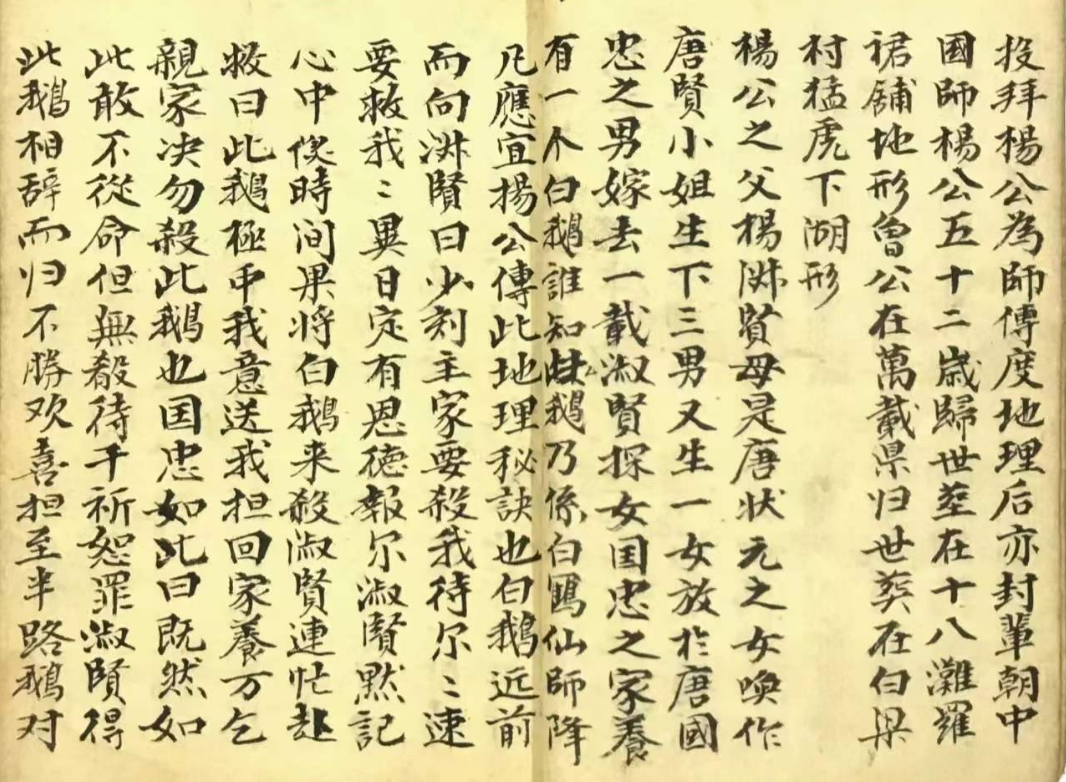 投拜楊公為師傅度地理后亦封軰朝中
國師楊公五十二歲歸世塟在十八灘羅
裙舖地形曾公在萬載県归世葬在白梁
村猛虎下湖形
楊公之父楊淑賢母是唐状元之女喚作
唐賢小姐生下三男又生一女放扵唐國
忠之男嫁去一載淑賢探女国忠之家養
有一个白鵝誰知此鵝乃係白鶴仙師降
凡應宜揚公傳此地理秘訣也白鵝近前
而向淑賢曰少刻主家要殺我待尔〻速
要救我〻異日定有恩德報尔淑賢默記
心中俟時间果将白鵝来殺淑賢連忙赴
救曰此鵝極中我意送我担回家養万乞
親家决勿殺此鵝也国忠如此曰既然如
此敢不從命但無殽待千祈恕罪淑賢得
此鵝相辞而归不勝欢喜担至半路鵝对